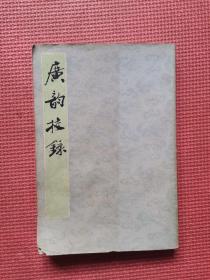 廣韵校錄